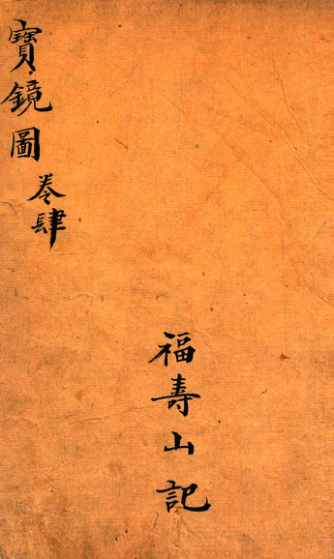 寶鏡圖 卷肆
福壽山記